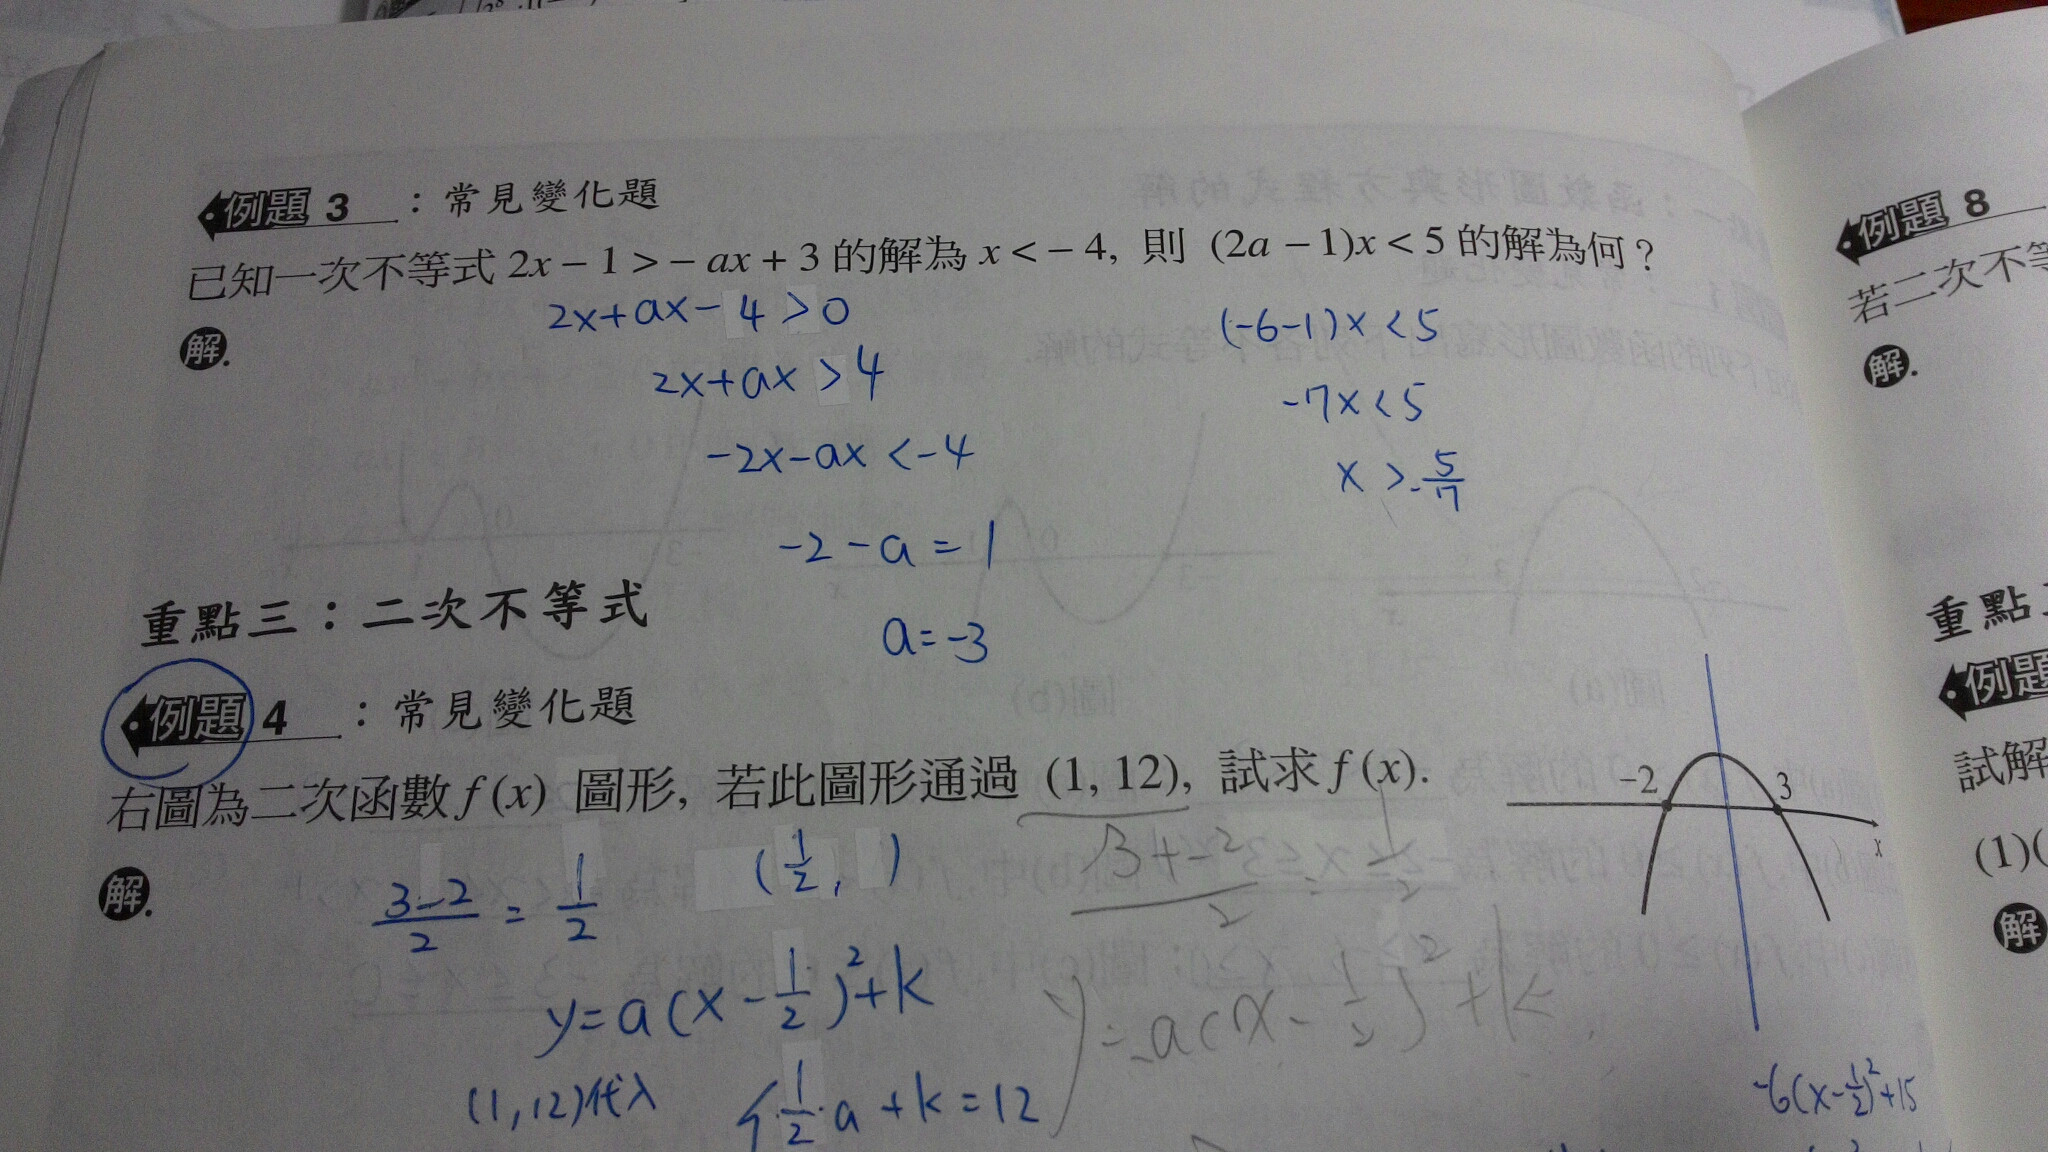 例題 3 : 常見變化題
已知一次不等式 2x − 1 > − ax + 3 的解為 x < − 4, 則 (2a − 1)x < 5 的解為何?
解.
2x+ax−4>0
2x+ax>4
−2x−ax<−4
−2−a=1
a=−3
(−6−1)x<5
−7x<5
x>-5/7
重點三:二次不等式
例題 4 : 常見變化題
右圖為二次函數 f(x) 圖形, 若此圖形通過 (1, 12), 試求 f(x).
解.
(3-2)/2 = 1/2
(1/2, )
y=a(x−1/2)²+k
y=-a(x−1/2)²+k
(1,12)代入
1/2·a+k=12
−2
3
x
-6(x-1/2)²+15
例題 8
若二次不等
解.
重點
例題
試解
(1)(
解